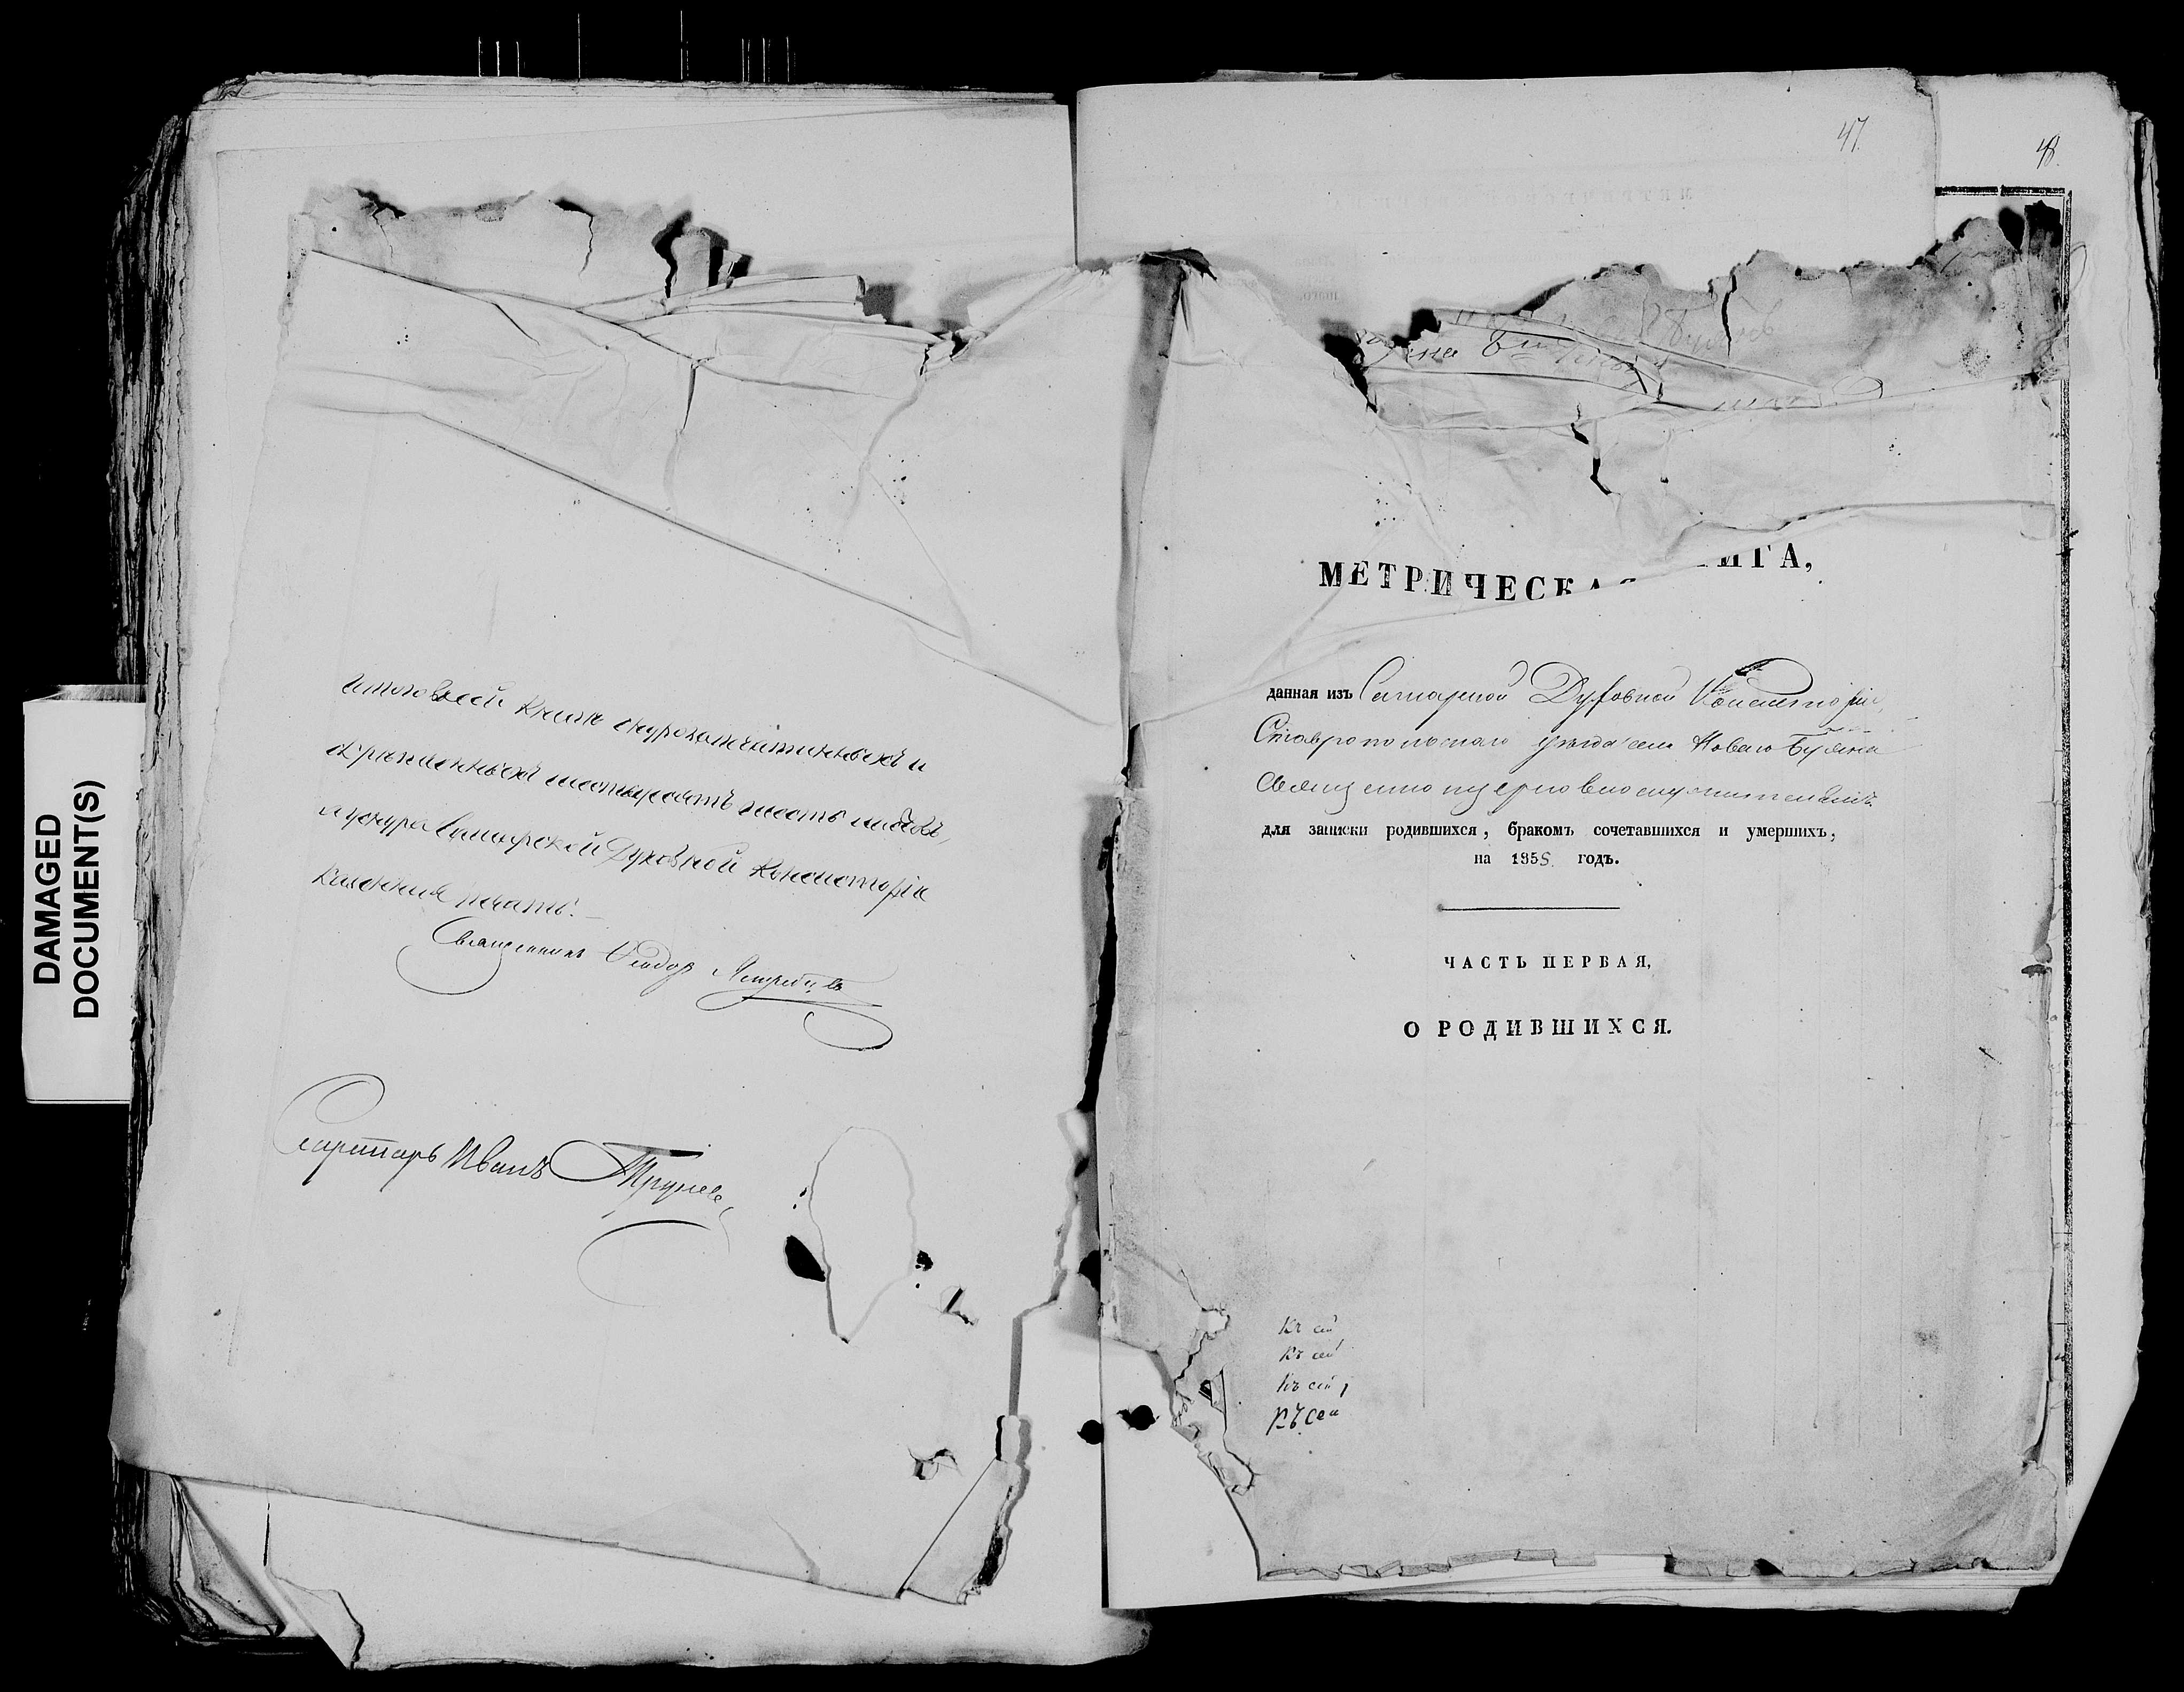 DAMAGED
DOCUMENT(S)
Итого въ сей книгѣ шнурозапечатанныхъ и
скрѣпленныхъ шестьдесятъ шесть листовъ,
у шнура Самарской Духовной Консисторіи
казенная печать.
Священникъ Феодоръ
Секретарь Иванъ
47.
48.
МЕТРИЧЕСКАЯ КНИГА,
данная изъ Самарской Духовной Консисторіи,
Ставропольскаго уѣзда села Новаго Буяна
Священноцерковнослужителямъ
для записки родившихся, бракомъ сочетавшихся и умершихъ,
на 1858 годъ.
ЧАСТЬ ПЕРВАЯ,
О РОДИВШИХСЯ.
Къ сей
Къ сей
Къ сей
Къ сей